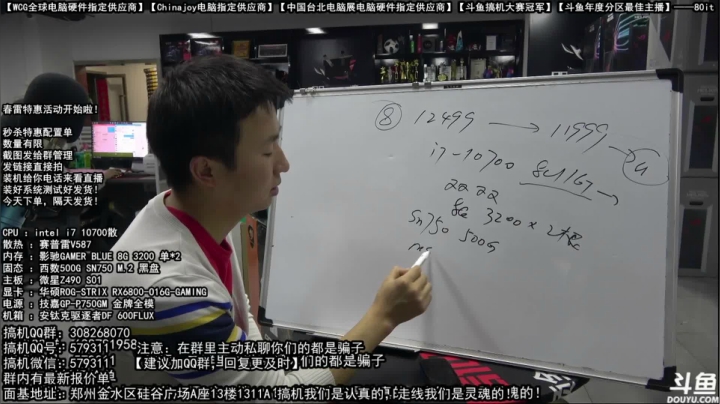 【WCG全球电脑硬件指定供应商】【Chinajoy电脑指定供应商】【中国台北电脑展电脑硬件指定供应商】【斗鱼搞机大赛冠军】【斗鱼年度分区最佳主播】——80it
春雷特惠活动开始啦！
秒杀特惠配置单
数量有限
截图发给群管理
发链接直接拍
装机给你电话来看直播
装好系统测试好发货！
今天下单，隔天发货！
CPU : intel i7 10700散
散热 : 赛普雷V587
内存 : 影驰GAMER BLUE 8G 3200 单*2
固态 : 西数500G SN750 M.2 黑盘
主板 : 微星Z490 S01
显卡 : 华硕ROG-STRIX RX6800-O16G-GAMING
电源 : 技嘉GP-P750GM 金牌全模
机箱 : 安钛克驱逐者DF 600FLUX
搞机QQ群: 308268070
搞机QQ号: 5793111958
注意: 在群里主动私聊你们的都是骗子
搞机微信: 5793111
【建议加QQ群, 回复更及时】
们的都是骗子
群内有最新报价单
面基地址: 郑州金水区硅谷广场A座13楼1311A
搞机我们是认真的，走线我们是灵魂的！
⑧ 12499 → 11999
i7-10700 8c16T
8G 3200×2
Sn750 500G
斗鱼
DOUYU.COM